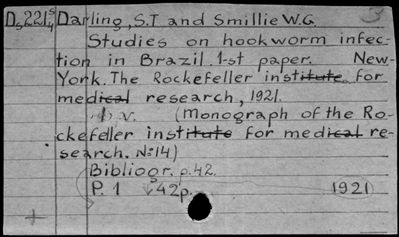 Ds221 s/4 Darling, S.T and Smillie W.G. 3
Studies on hookworm infec-
tion in Brazil. 1-st paper. New-
York. The Rockefeller institute for
medical research, 1921.
1 v. (Monograph of the Ro-
ckefeller institute for medical re-
search. №14)
Bibliogr. p.42.
P. 1 42p. 1921